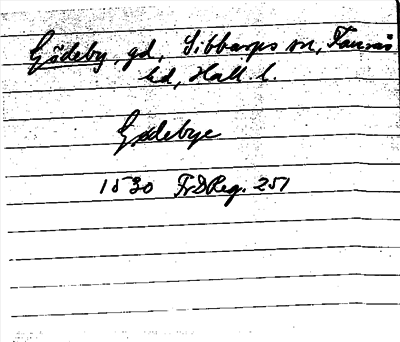 Gödeby, gd, Sibbarps sn, Faurås
hd, Hall l.
Gødebye
1530 FrDReg. 251